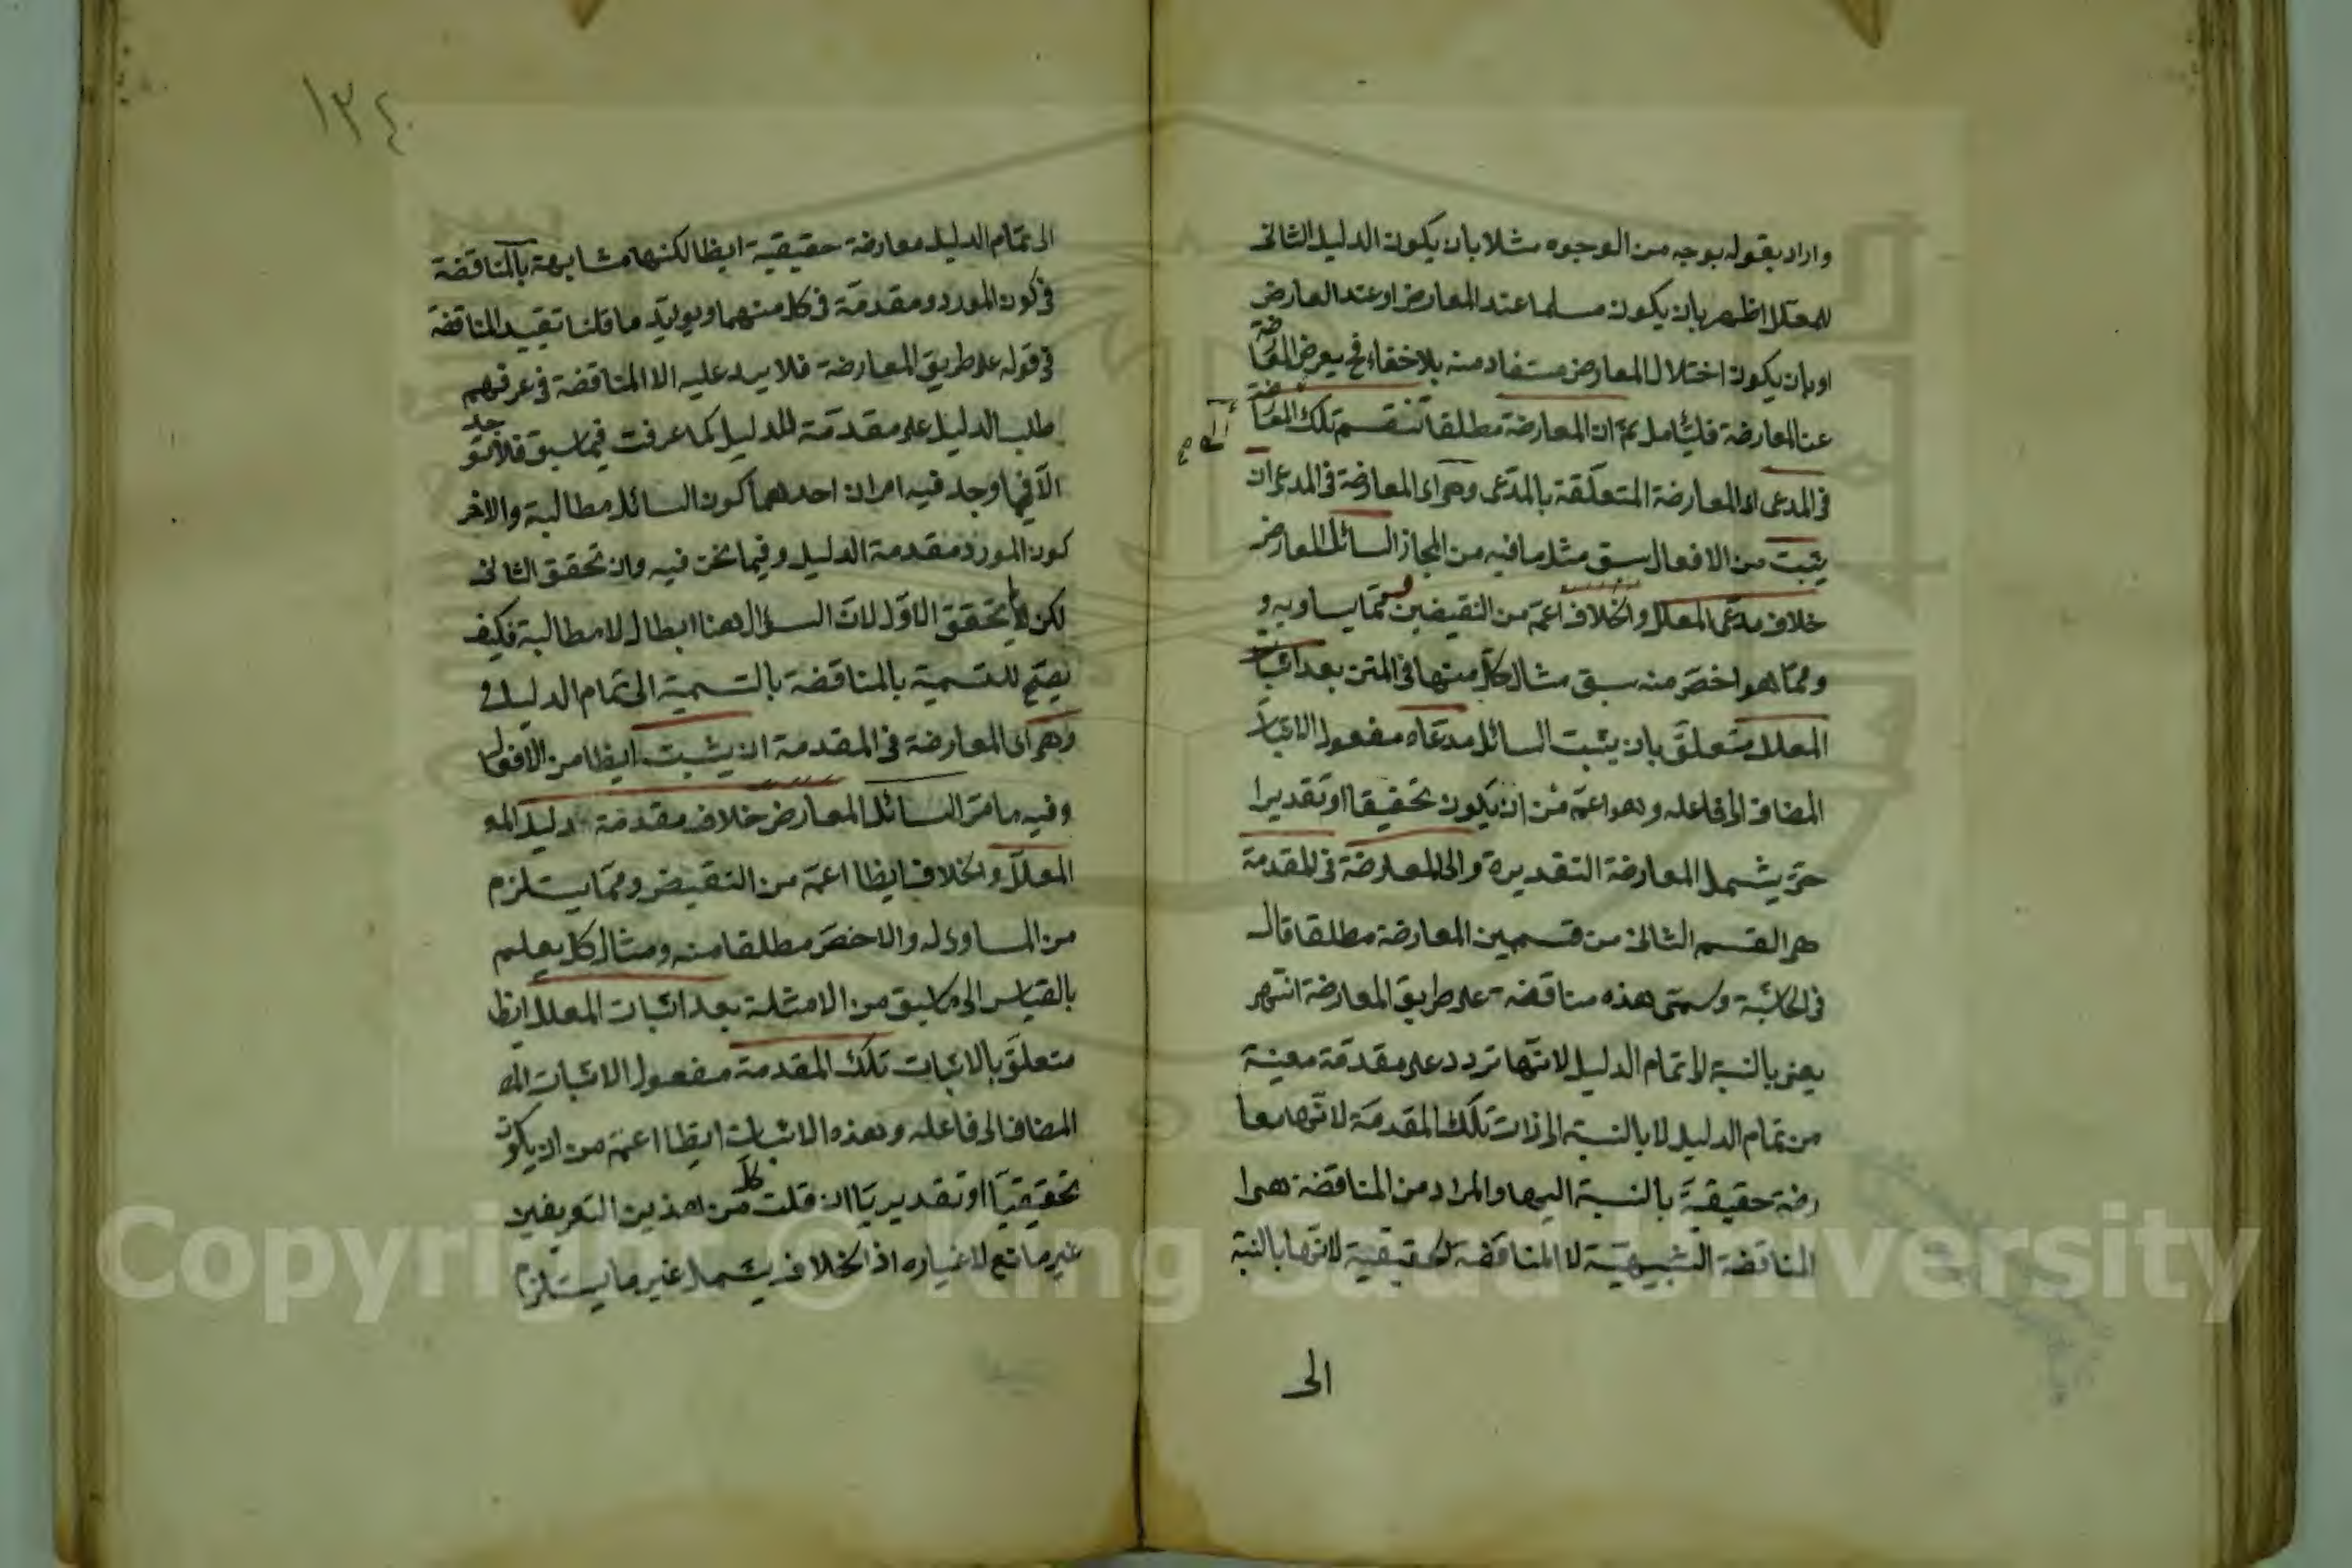 واراد بقوله بوجه من الوجوه مثلا بان يكون الدليل الثانى
للمعلل اظهر بان يكون مسلما عند المعارض او عند العارض
او بان يكون اختلال المعارض مستفاد منه بلا خفاء فح يعرض المعا
رضة
عن المعارضة فليتامل ثم ان المعارضة مطلقا تنقسم تلك المعا
رضة
فى المدعى اى المعارضة المتعلقة بالمدعى وهى اى المعارضة فى المدعى ان
يثبت من الافعال سبق مثل ما فيه من المجاز السائل المعارض
خلاف مدعى المعلل والخلاف اعم من النقيضين ومما يساويه و
ومما هو اخص منه سبق مثال كل منها فى المتن بعد اثبات
المعلل متعلق بان يثبت السائل مدعاه مفعول الاثبات
المضاف الى فاعله وهو اعم من ان يكون تحقيقا او تقديرا
حتى يشمل المعارضة التقديرة والى المعارضة فى المقدمة
هى القسم الثانى من قسمين المعارضة مطلقا قال
فى الحاشية وسمى هذه مناقضة على طريق المعارضة انتهى
يعنى بالنسبة الى تمام الدليل لانها تردد على مقدمة معينة
من تمام الدليل لا بالنسبة الى ذات تلك المقدمة لانها معا
رضة حقيقية بالنسبة اليها والمراد من المناقضة هى ا
المناقضة التشبيهية لا المناقضة الحقيقية لانها بالنسبة
الى
١٣٤
الى تمام الدليل معارضة حقيقية ايظا لكنها مشابهة بالمناقضة
فى كون المورد ومقدمة فى كل منهما ويويد ما قلنا تقييد المناقضة
فى قوله على طريق المعارضة فلا يرد عليه الا المناقضة فى عرفهم
طلب الدليل على مقدمة الدليل كما عرفت فيما سبق فلا تو
جد
الا فيما وجد فيه امران احدهما كون السائل مطالبة والاخر
كون المورد مقدمة الدليل وفيما نحن فيه وان تحقق الثانى
لكن لم يتحقق الاول لان السؤال هنا ابطال لا مطالبة فكيف
يصح للتسمية بالمناقضة بالتسمية الى تمام الدليل و
وهى اى المعارضة فى المقدمة ان يثبت ايظا من الافعال
وفيه ما مر السائل المعارض خلاف مقدمة دليل المعـ
المعلل والخلاف ايظا اعم من النقيض ومما يستلزم
من المساوى له والاخص مطلقا منه ومثال كل يعلم
بالقياس الى ما سبق من الامثلة بعد اثبات المعلل ايظ
متعلق بالاثبات تلك المقدمة مفعول الاثبات المضـ
المضاف الى فاعله وهذه الاثبات ايظا اعم من ان يكون
تحقيقيا او تقديريا ان قلت كل من هذين التعريفين
غير مانع لاغياره اذ الخلاف يشمل غير ما يستلزم
Copyright © King Saud University